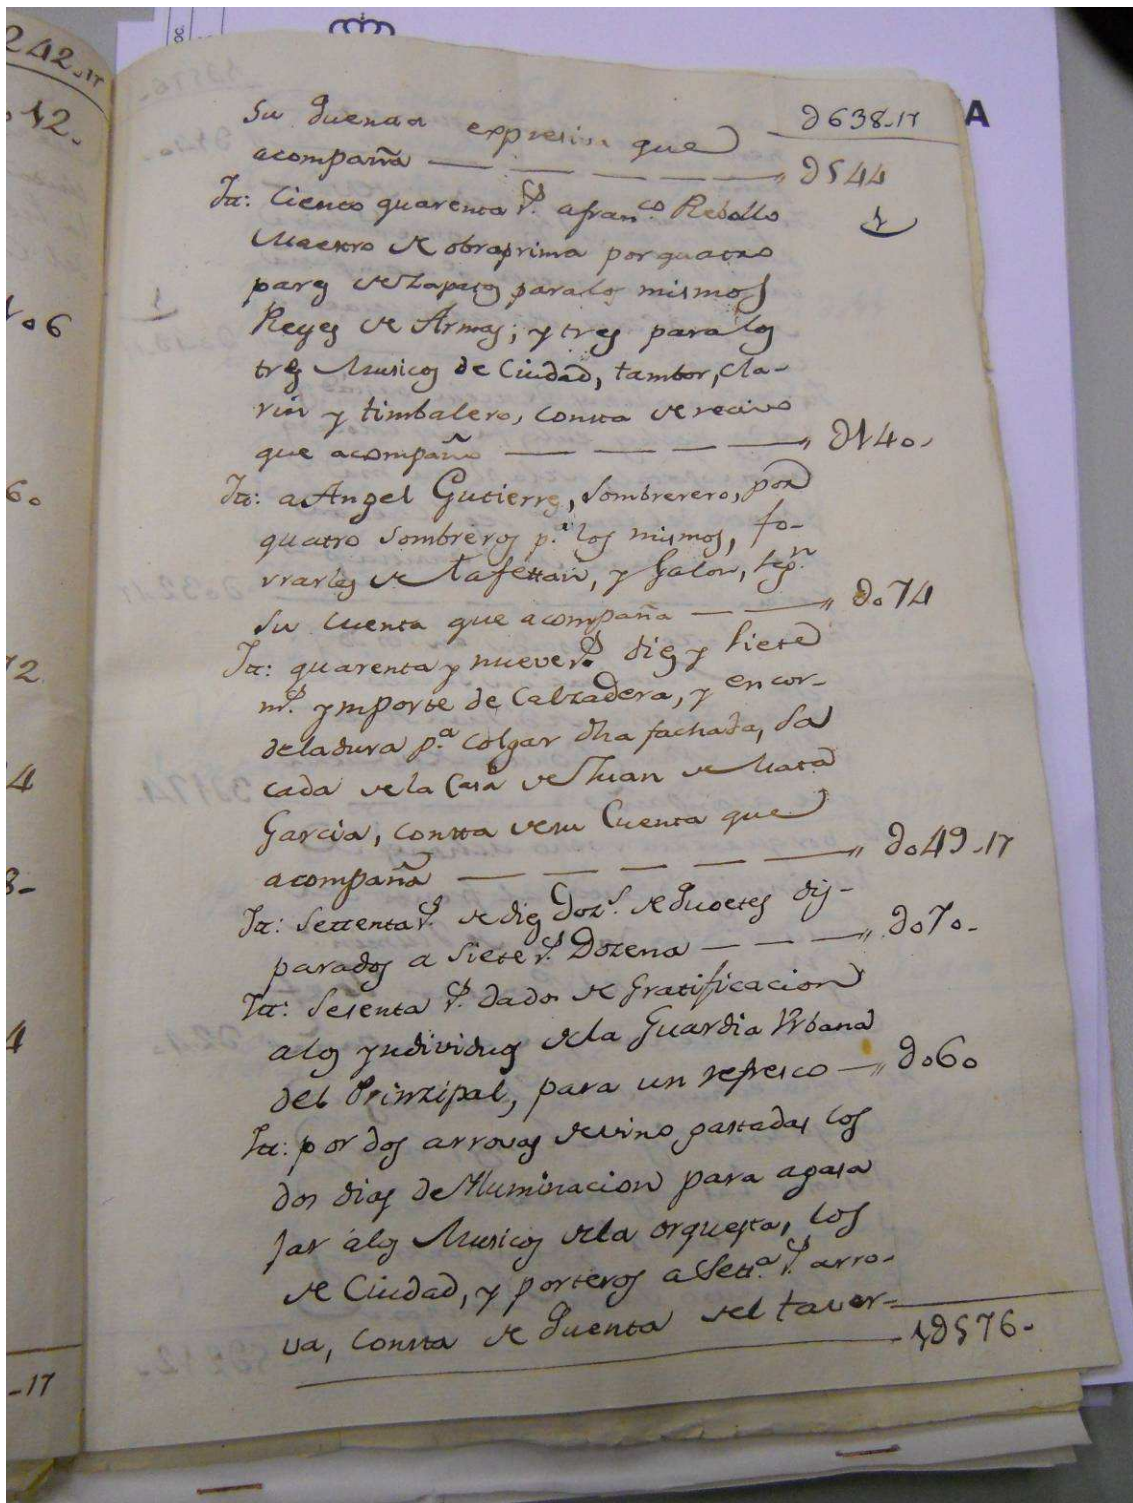 242„17
12.
06
60
72
4
3-
4
-17
A
Ð638„17
su Quenta expresiva que
acompaña — — — — — „ Ð544
Itt: Ciento quarenta rs. a franco. Rebollo
Maestro de obraprima por quatro
pares de Zapatos para los mismos
Reyes de Armas; y tres para los
tres Musicos de Ciudad, tambor, cla-
rin y timbalero, consta de recivo
que acompaño — — — — „ Ð140„
Itt: a Angel Gutierres, Sombrerero, por
quatro Sombreros pa. los mismos, fo-
rrarlos de tafettan, y Galon, segn.
su cuenta que acompaña — — „ Ðo74
Itt: quarenta y nueve rs. dies y siete
mrs. ymporte de Calzadera, y encor-
deladura pa. colgar dha fachada, sa
cada de la Casa de Juan de Mata
Garcia, consta de su Cuenta que
acompaña — — — — — „ Ðo49„17
Itt: Settenta rs. de dies Dozs. de Quoetes dis-
parados a Siete rs. Dozena — — — „ Ðo70„
Itt: Sesenta rs. dados de Gratificacion
a los yndividuos de la Guardia Vrbana
del Prinzipal, para un refresco — „ Ðo60
Itt: por dos arrovas de vino gastadas los
dos dias de Yluminacion para agasa
jar à los Musicos de la orquesta, los
de Ciudad, y porteros a Setta. rs. arro-
va, consta de Quenta del taver-
1Ð576„